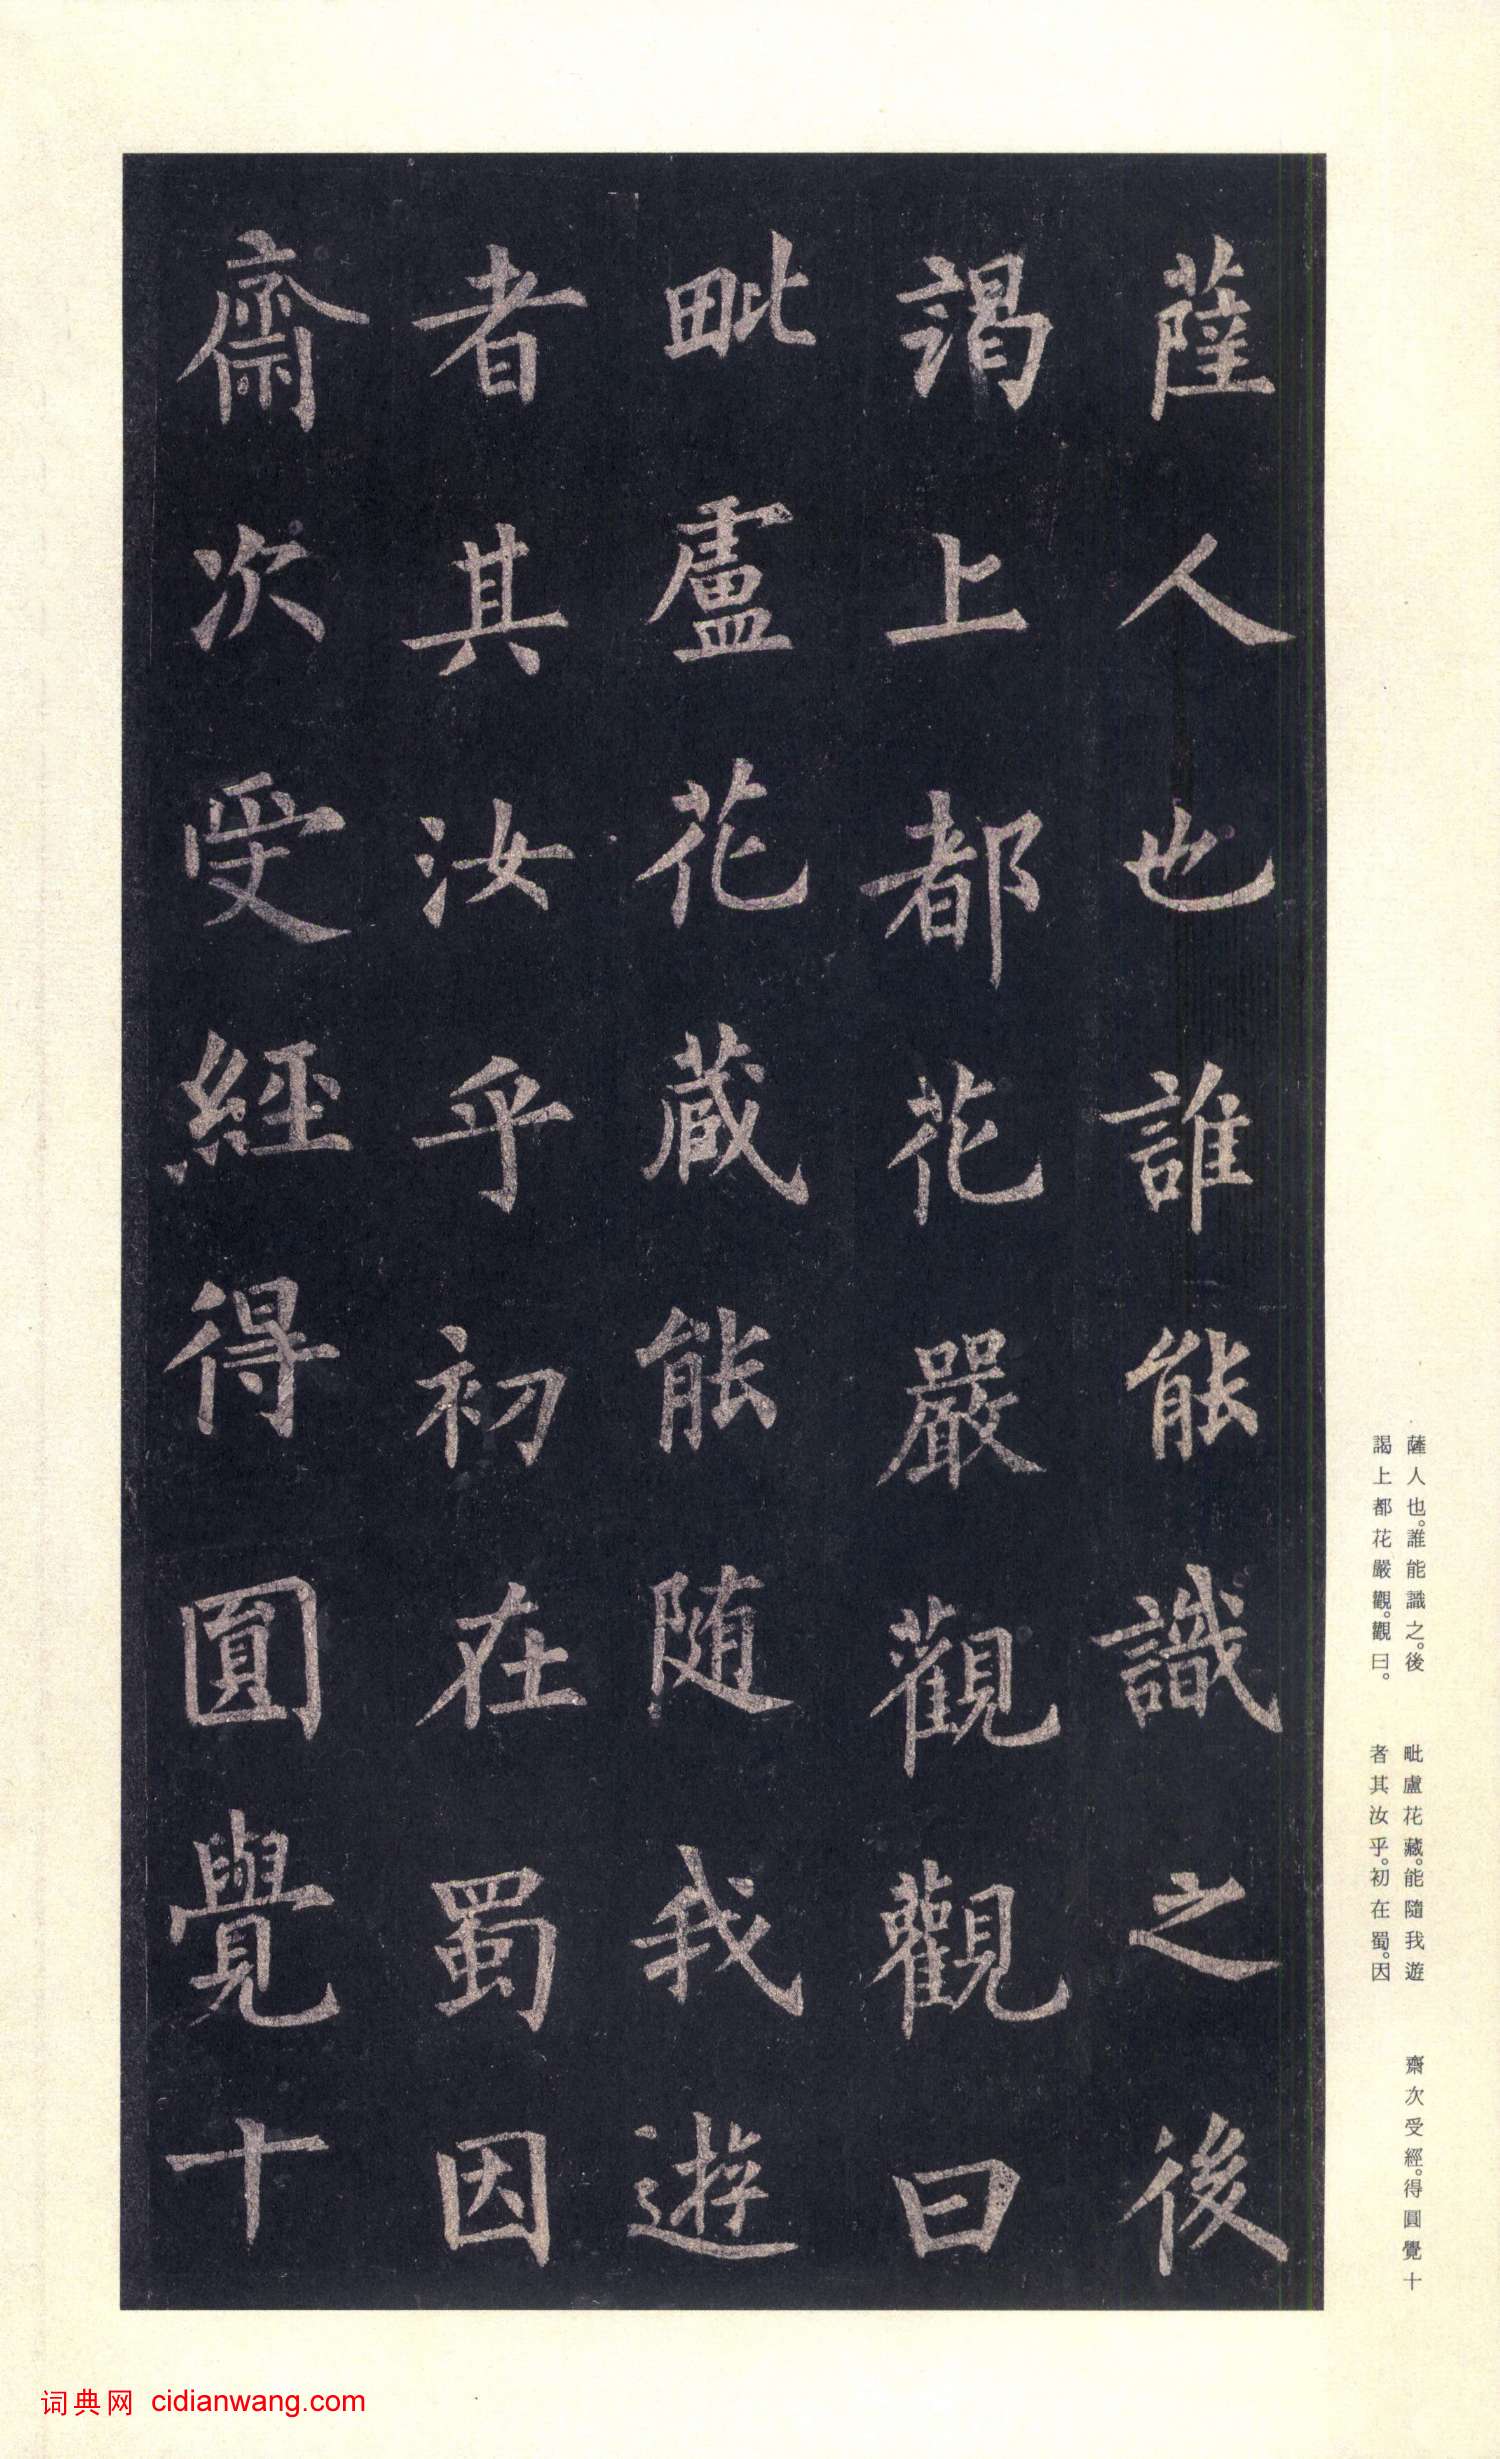 薩人也誰能識之後
謁上都花嚴觀觀曰
毗盧花藏能随我遊
者其汝乎初在蜀因
齋次受經得圓覺十
薩人也。誰能識之。後
謁上都花嚴觀。觀曰。
毗盧花藏。能隨我遊
者其汝乎。初在蜀。因
齋次受經。得圓覺十
词典网 cidianwang.com